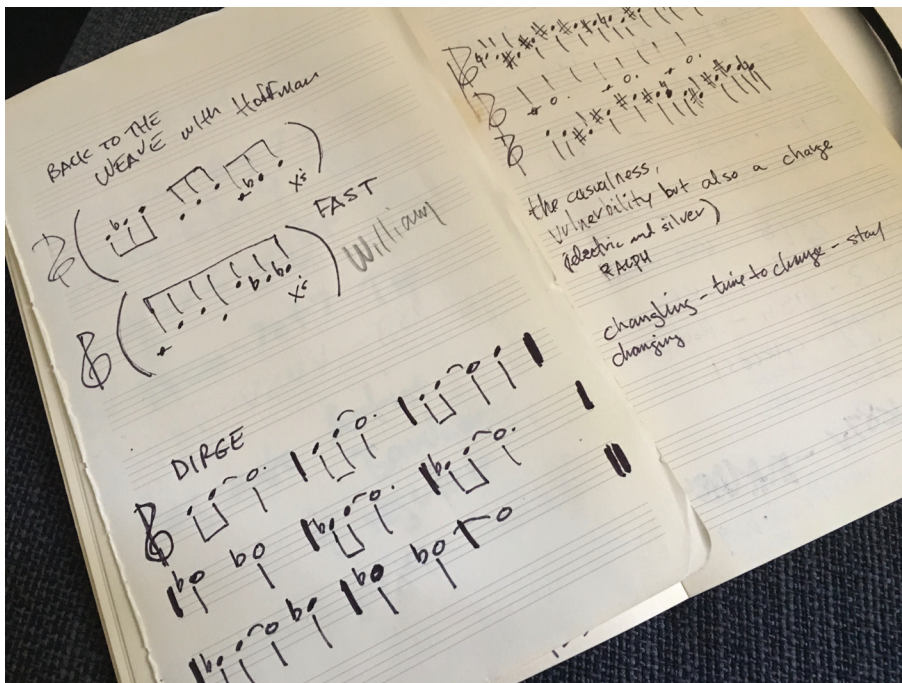 BACK TO THE
WEAVE with Hoffman
X5
FAST
X5
William
DIRGE
the casualness,
vulnerbility but also a charge
(electric and silver)
RALPH
changling - time to change - stay
changing